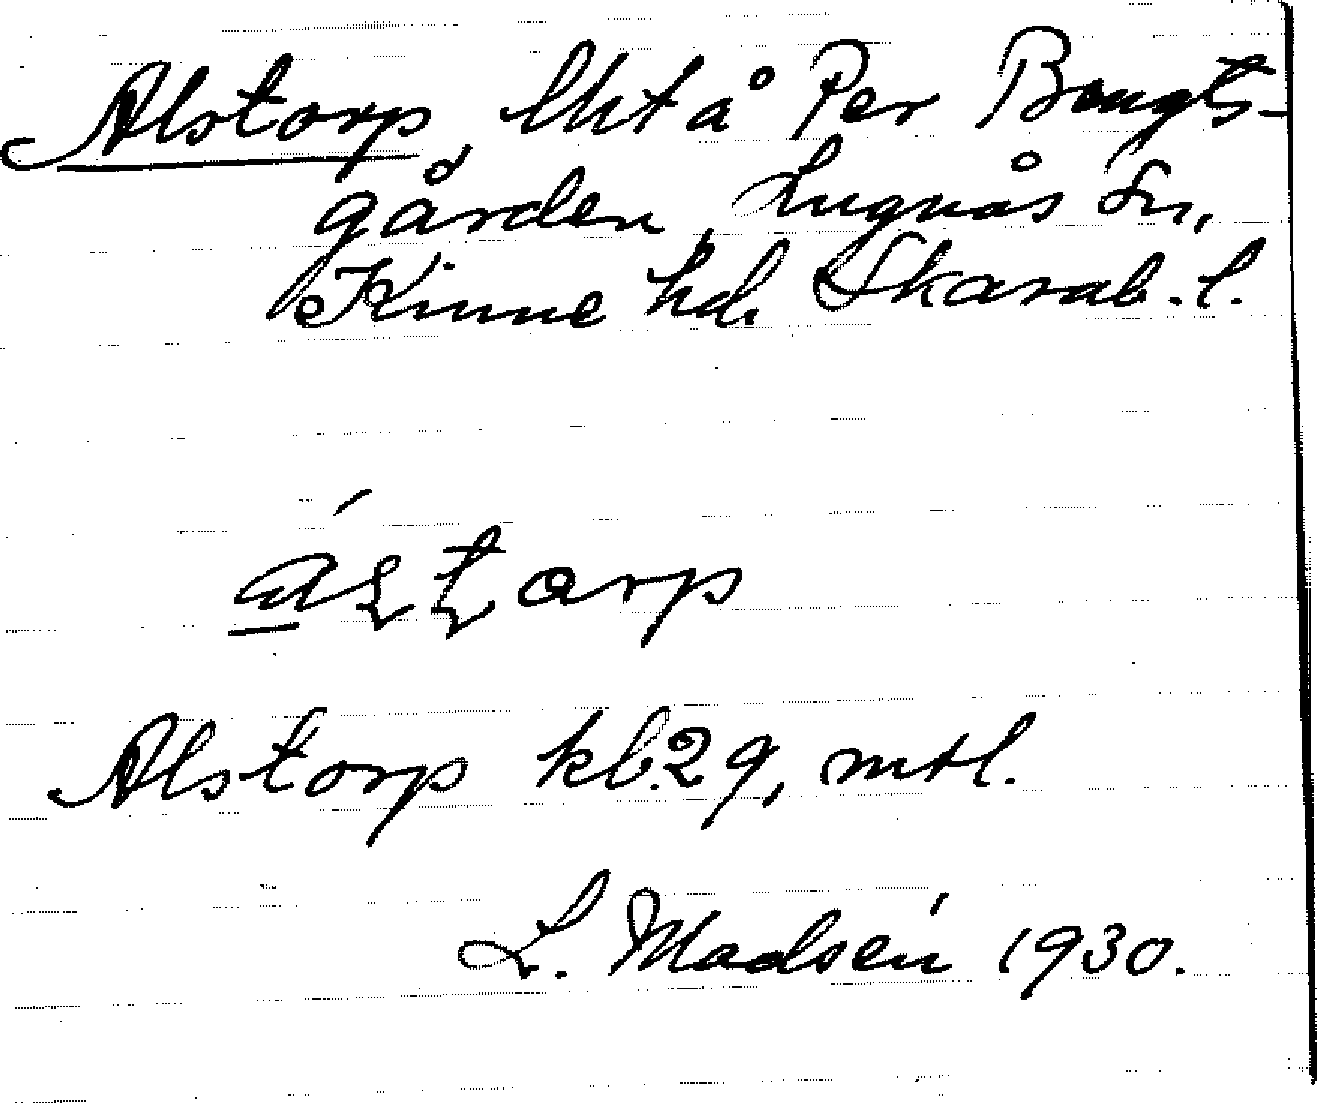 Alstorp lht å Per Bengts-
gården, Lugnås Sn,
Kinne hd. Skarab. l.
Alstorp kb. 29, mtl.
L. Madsén 1930.